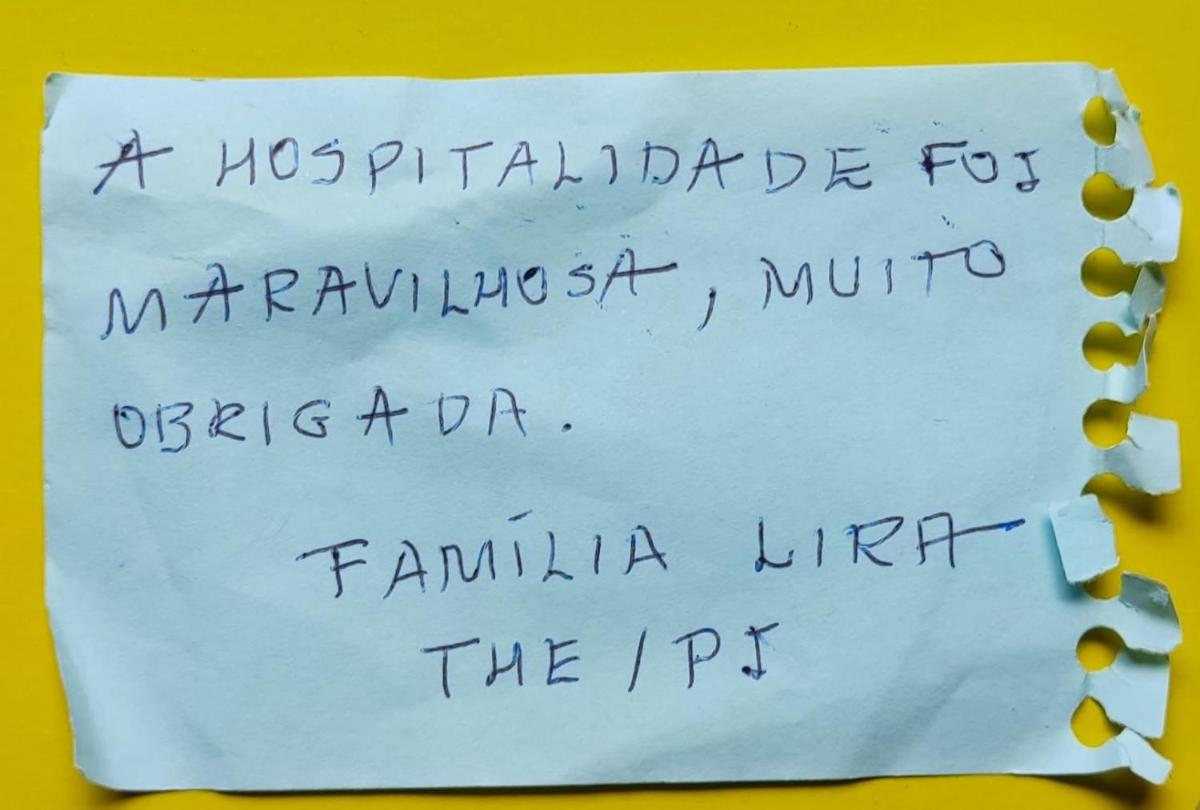 A HOSPITALIDADE FOI
MARAVILHOSA, MUITO
OBRIGADA.
FAMÍLIA LIRA
THE / PI